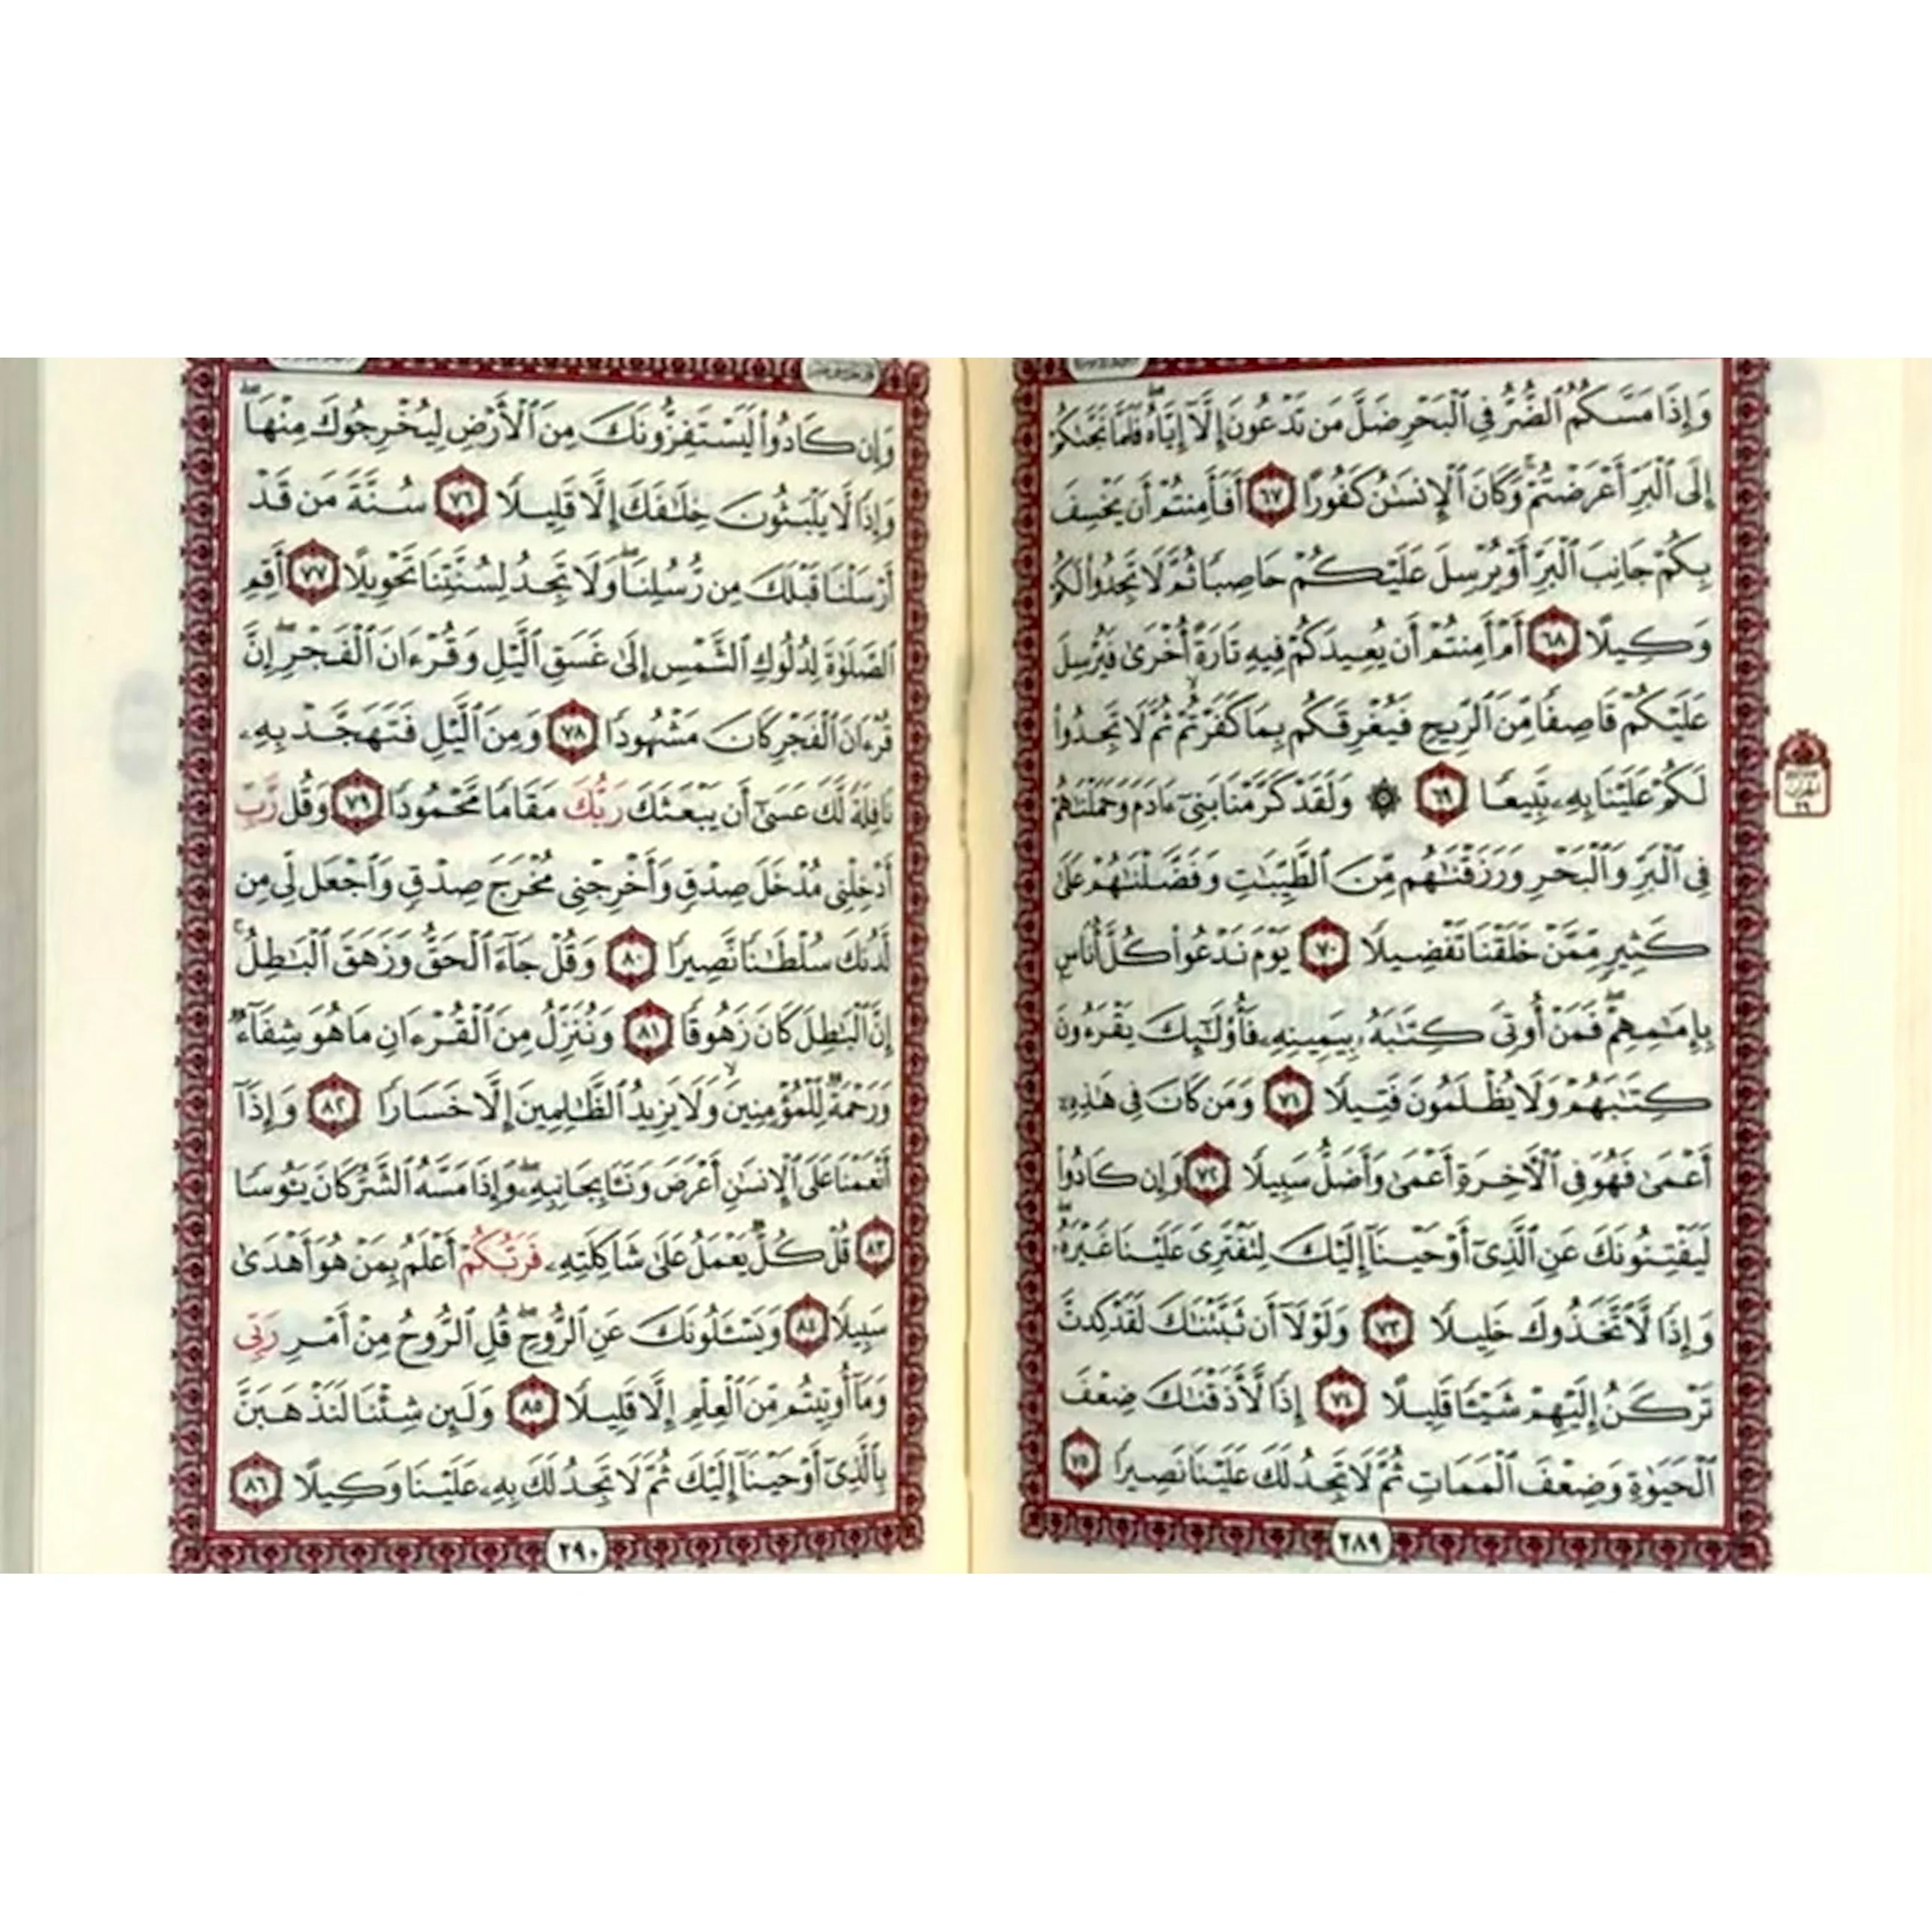 وَإِذَا مَسَّكُمُ ٱلضُّرُّ فِي ٱلْبَحْرِ ضَلَّ مَن تَدْعُونَ إِلَّآ إِيَّاهُ ۖ فَلَمَّا نَجَّىٰكُمْ
إِلَى ٱلْبَرِّ أَعْرَضْتُمْ ۚ وَكَانَ ٱلْإِنسَٰنُ كَفُورًا ٦٧ أَفَأَمِنتُمْ أَن يَخْسِفَ
بِكُمْ جَانِبَ ٱلْبَرِّ أَوْ يُرْسِلَ عَلَيْكُمْ حَاصِبًا ثُمَّ لَا تَجِدُوا۟ لَكُمْ
وَكِيلًا ٦٨ أَمْ أَمِنتُمْ أَن يُعِيدَكُمْ فِيهِ تَارَةً أُخْرَىٰ فَيُرْسِلَ
عَلَيْكُمْ قَاصِفًا مِّنَ ٱلرِّيحِ فَيُغْرِقَكُم بِمَا كَفَرْتُمْ ۙ ثُمَّ لَا تَجِدُوا۟
لَكُمْ عَلَيْنَا بِهِۦ تَبِيعًا ٦٩ ۞ وَلَقَدْ كَرَّمْنَا بَنِىٓ ءَادَمَ وَحَمَلْنَٰهُمْ
فِى ٱلْبَرِّ وَٱلْبَحْرِ وَرَزَقْنَٰهُم مِّنَ ٱلطَّيِّبَٰتِ وَفَضَّلْنَٰهُمْ عَلَىٰ
كَثِيرٍ مِّمَّنْ خَلَقْنَا تَفْضِيلًا ٧٠ يَوْمَ نَدْعُوا۟ كُلَّ أُنَاسٍۭ
بِإِمَٰمِهِمْ ۖ فَمَنْ أُوتِىَ كِتَٰبَهُۥ بِيَمِينِهِۦ فَأُو۟لَٰٓئِكَ يَقْرَءُونَ
كِتَٰبَهُمْ وَلَا يُظْلَمُونَ فَتِيلًا ٧١ وَمَن كَانَ فِى هَٰذِهِۦٓ
أَعْمَىٰ فَهُوَ فِى ٱلْءَاخِرَةِ أَعْمَىٰ وَأَضَلُّ سَبِيلًا ٧٢ وَإِن كَادُوا۟
لَيَفْتِنُونَكَ عَنِ ٱلَّذِىٓ أَوْحَيْنَآ إِلَيْكَ لِتَفْتَرِىَ عَلَيْنَا غَيْرَهُۥ ۖ
وَإِذًا لَّٱتَّخَذُوكَ خَلِيلًا ٧٣ وَلَوْلَآ أَن ثَبَّتْنَٰكَ لَقَدْ كِدتَّ
تَرْكَنُ إِلَيْهِمْ شَيْـًٔا قَلِيلًا ٧٤ إِذًا لَّأَذَقْنَٰكَ ضِعْفَ
ٱلْحَيَوٰةِ وَضِعْفَ ٱلْمَمَاتِ ثُمَّ لَا تَجِدُ لَكَ عَلَيْنَا نَصِيرًا ٧٥
٢٨٩
وَإِن كَادُوا۟ لَيَسْتَفِزُّونَكَ مِنَ ٱلْأَرْضِ لِيُخْرِجُوكَ مِنْهَا ۖ
وَإِذًا لَّا يَلْبَثُونَ خِلَٰفَكَ إِلَّا قَلِيلًا ٧٦ سُنَّةَ مَن قَدْ
أَرْسَلْنَا قَبْلَكَ مِن رُّسُلِنَا ۖ وَلَا تَجِدُ لِسُنَّتِنَا تَحْوِيلًا ٧٧ أَقِمِ
ٱلصَّلَوٰةَ لِدُلُوكِ ٱلشَّمْسِ إِلَىٰ غَسَقِ ٱلَّيْلِ وَقُرْءَانَ ٱلْفَجْرِ ۖ إِنَّ
قُرْءَانَ ٱلْفَجْرِ كَانَ مَشْهُودًا ٧٨ وَمِنَ ٱلَّيْلِ فَتَهَجَّدْ بِهِۦ
نَافِلَةً لَّكَ عَسَىٰٓ أَن يَبْعَثَكَ رَبُّكَ مَقَامًا مَّحْمُودًا ٧٩ وَقُل رَّبِّ
أَدْخِلْنِى مُدْخَلَ صِدْقٍ وَأَخْرِجْنِى مُخْرَجَ صِدْقٍ وَٱجْعَل لِّى مِن
لَّدُنكَ سُلْطَٰنًا نَّصِيرًا ٨٠ وَقُلْ جَآءَ ٱلْحَقُّ وَزَهَقَ ٱلْبَٰطِلُ ۚ
إِنَّ ٱلْبَٰطِلَ كَانَ زَهُوقًا ٨١ وَنُنَزِّلُ مِنَ ٱلْقُرْءَانِ مَا هُوَ شِفَآءٌ
وَرَحْمَةٌ لِّلْمُؤْمِنِينَ ۙ وَلَا يَزِيدُ ٱلظَّٰلِمِينَ إِلَّا خَسَارًا ٨٢ وَإِذَآ
أَنْعَمْنَا عَلَى ٱلْإِنسَٰنِ أَعْرَضَ وَنَـَٔا بِجَانِبِهِۦ ۖ وَإِذَا مَسَّهُ ٱلشَّرُّ كَانَ يَـُٔوسًا
٨٣ قُلْ كُلٌّ يَعْمَلُ عَلَىٰ شَاكِلَتِهِۦ فَرَبُّكُمْ أَعْلَمُ بِمَنْ هُوَ أَهْدَىٰ
سَبِيلًا ٨٤ وَيَسْـَٔلُونَكَ عَنِ ٱلرُّوحِ ۖ قُلِ ٱلرُّوحُ مِنْ أَمْرِ رَبِّى
وَمَآ أُوتِيتُم مِّنَ ٱلْعِلْمِ إِلَّا قَلِيلًا ٨٥ وَلَئِن شِئْنَا لَنَذْهَبَنَّ
بِٱلَّذِىٓ أَوْحَيْنَآ إِلَيْكَ ثُمَّ لَا تَجِدُ لَكَ بِهِۦ عَلَيْنَا وَكِيلًا ٨٦
٢٩٠